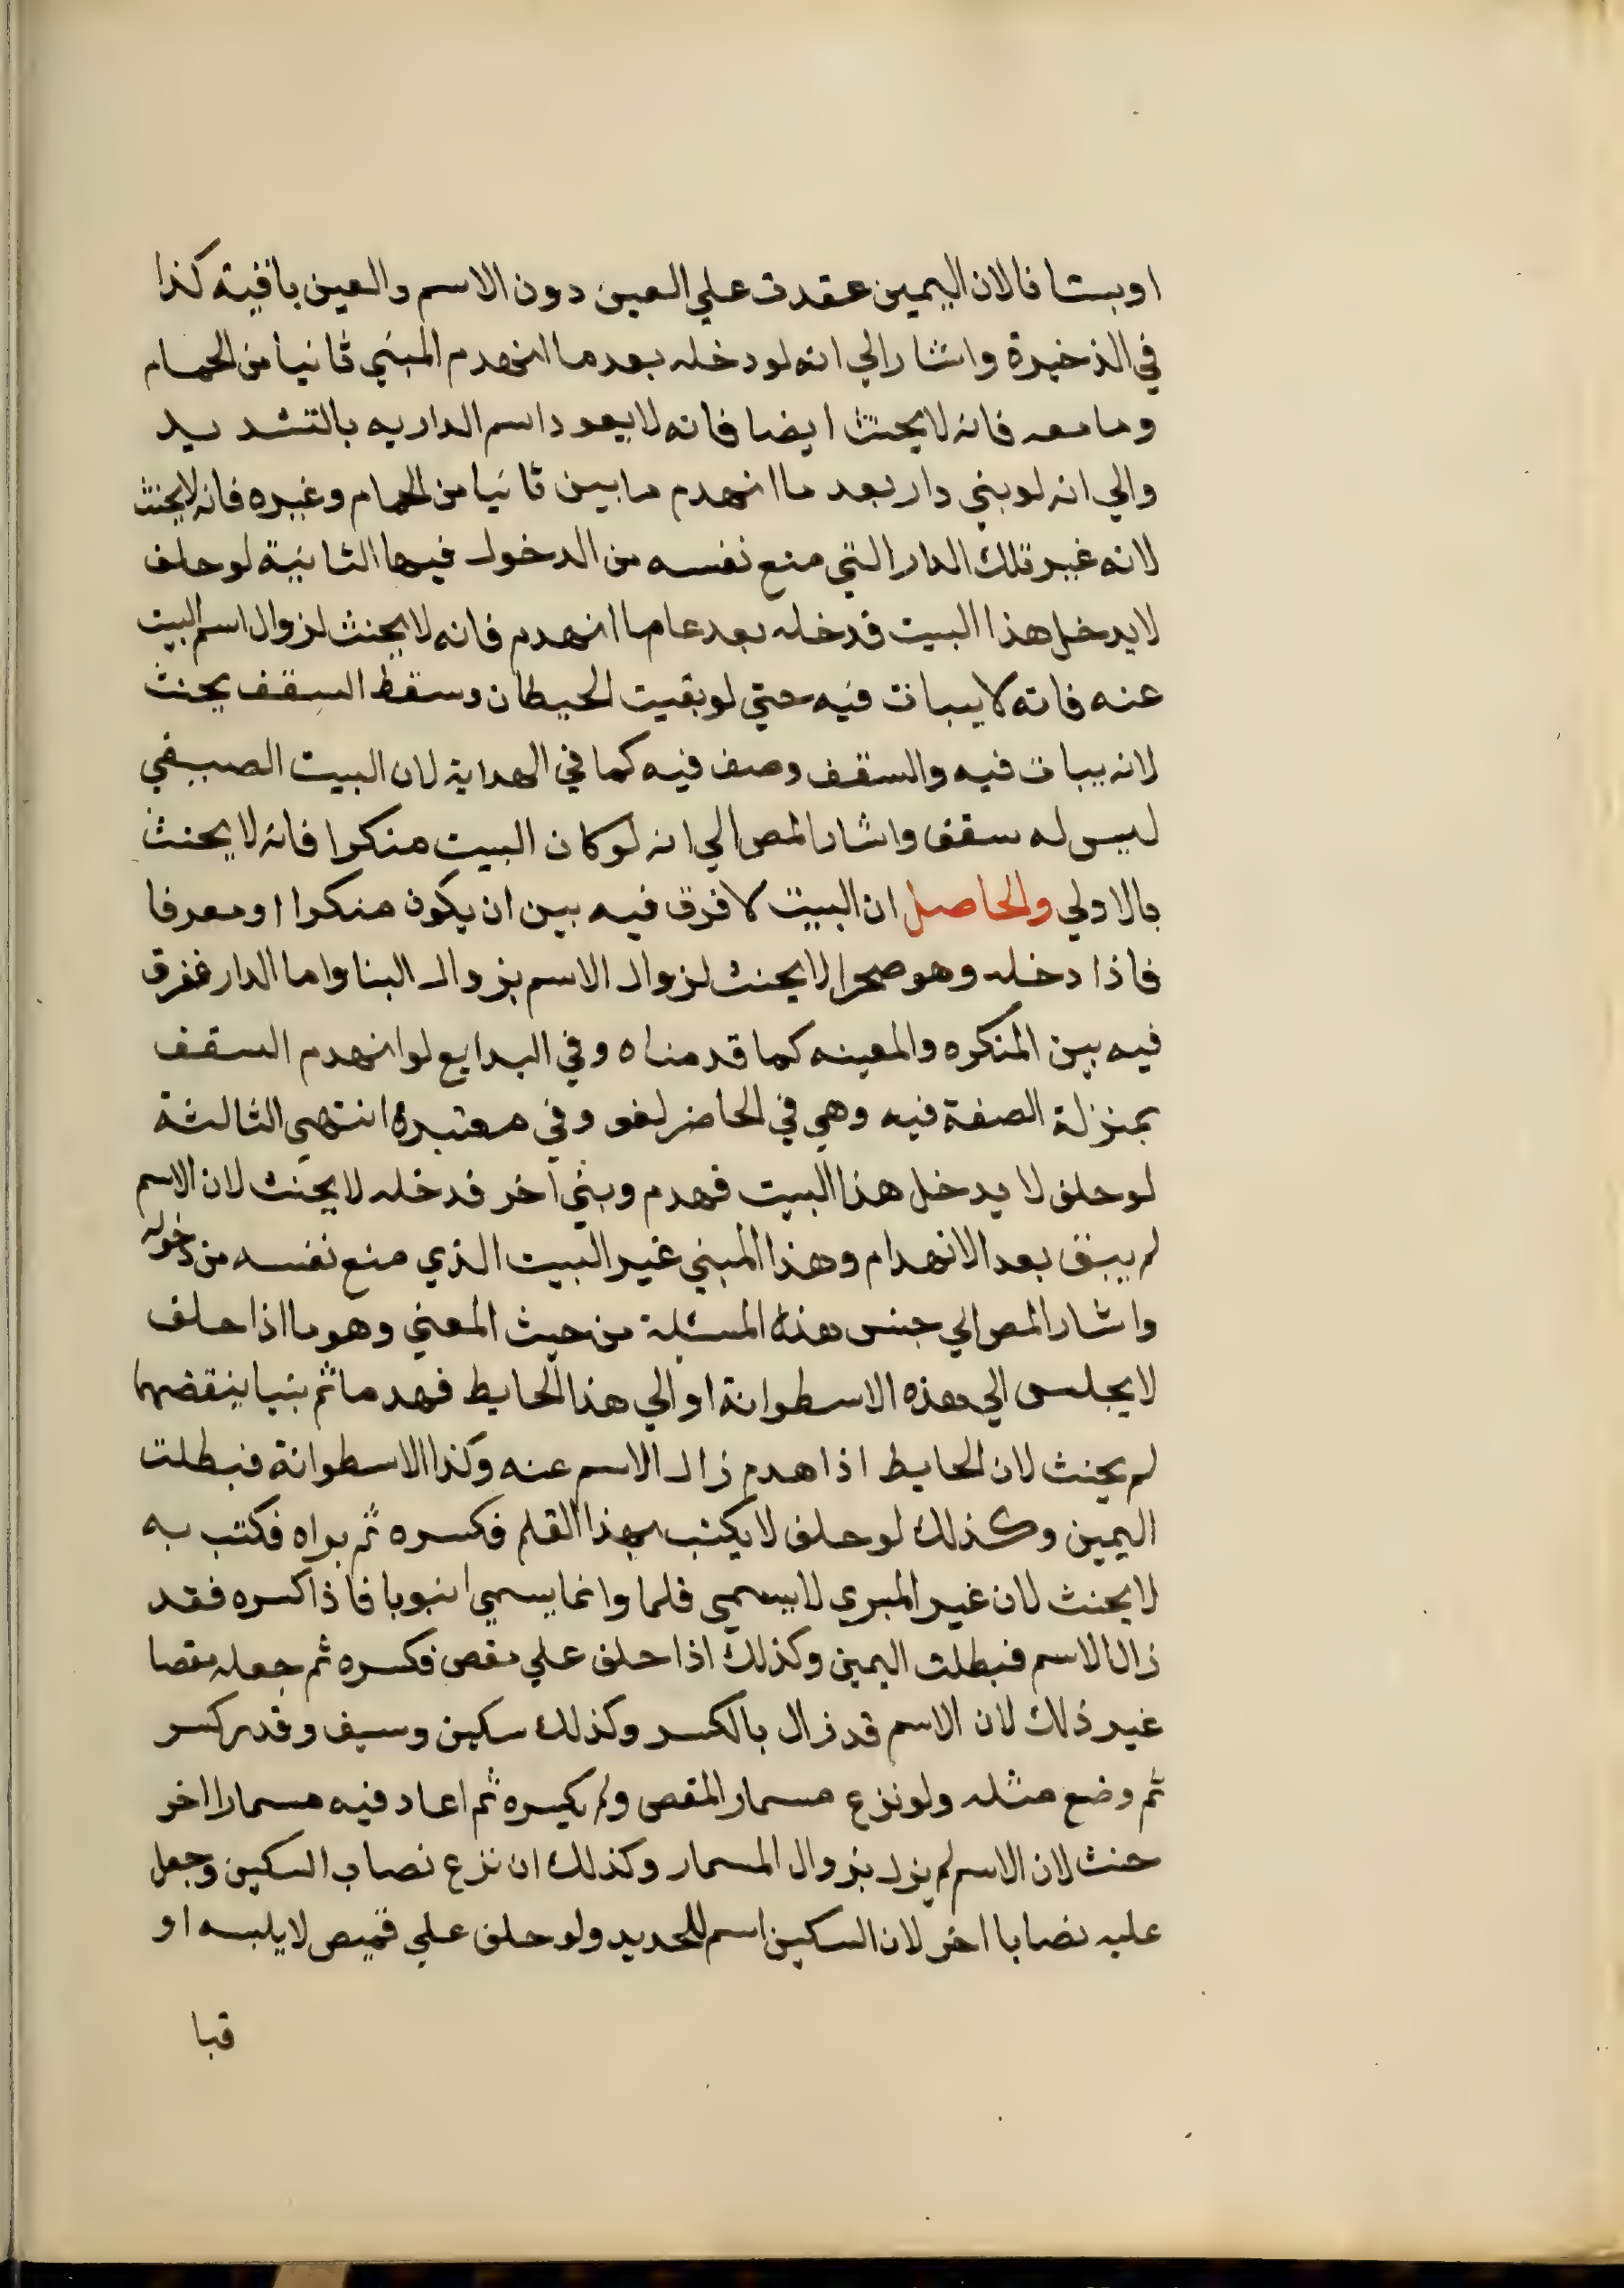 او بستانا لان اليمين عقدت علي العين دون الاسم والعين باقية كذا
في الذخيرة واشار الي انه لو دخله بعد ما انهدم المبني ثانيا من الحمام
وما معه فانه لا يحنث ايضا فانه لا يعود اسم الداريه بالتشديد
والي انه لو بني دار بعد ما انهدم ما بين ثانيا من الحمام وغيره فانه لا يحنث
لانه غير تلك الدار التي منع نفسه من الدخول فيها الثانية لو حلف
لا يدخل هذا البيت فدخله بعد عاما انهدم فانه لا يحنث لزوال اسم البيت
عنه فانه لا يبات فيه حتي لو بقيت الحيطان وسقط السقف يحنث
لانه يبات فيه والسقف وصف فيه كما في الهداية لان البيت الصيفي
ليس له سقف واشار المص الي انه لو كان البيت منكرا فانه لا يحنث
بالاولي والحاصل ان البيت لا فرق فيه بين ان يكون منكرا او معرفا
فاذا دخله وهو صحرا لا يحنث لزوال الاسم بزوال البنا واما الدار ففرق
فيه بين المنكره والمعينه كما قدمناه وفي البدايع لو انهدم السقف
بمنزلة الصفة فيه وهي في الحاضر لغو وفي معتبرة انتهي الثالثة
لو حلف لا يدخل هذا البيت فهدم وبني آخر فدخله لا يحنث لان الاسم
لم يبق بعد الانهدام وهذا المبني غير البيت الذي منع نفسه من دخوله
واشار المص الي جنس هذه المسئلة من حيث المعني وهو ما اذا حلف
لا يجلس الي هذه الاسطوانة او الي هذا الحايط فهدما ثم بنيا بنقضهما
لم يحنث لان الحايط اذا هدم زال الاسم عنه وكذا الاسطوانة فبطلت
اليمين وكذلك لو حلف لا يكتب بهذا القلم فكسره ثم براه فكتب به
لا يحنث لان غير المبري لا يسمي قلما وانما يسمي انبوبا فاذا كسره فقد
زال الاسم فبطلت اليمين وكذلك اذا حلف علي مقص فكسره ثم جعله مقصا
غير ذلك لان الاسم قد زال بالكسر وكذلك سكين وسيف وقدر كسر
ثم وضع مثله ولو نزع مسمار المقص ولم يكسره ثم اعاد فيه مسمارا اخر
حنث لان الاسم لم يزل بزوال المسمار وكذلك ان نزع نصاب السكين وجعل
عليه نصابا اخر لان السكين اسم للحديد ولو حلف علي قميص لا يلبسه او
قبا